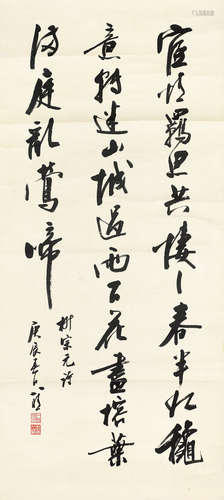 宦情羈思共悽〻春半如穐
意轉迷山城過雨百花盡榕葉
滿庭亂鶯啼
柳宗元詩
庚辰